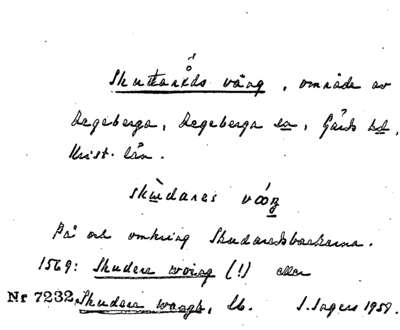 Skuttaråds vång, område av
Degeberga, Degeberga sn, Gärds hd,
Krist. län.
skùdares vóŋ
På och omkring Skudaredsbackarna.
1569: Skudere woing (!) eller
Nr 7232. Skudere waagh, lb. S. Sagers 1958.